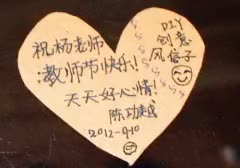 祝杨老师
教师节快乐!
天天好心情!
陈功越
2012-9.10
DIY
创意
风信子